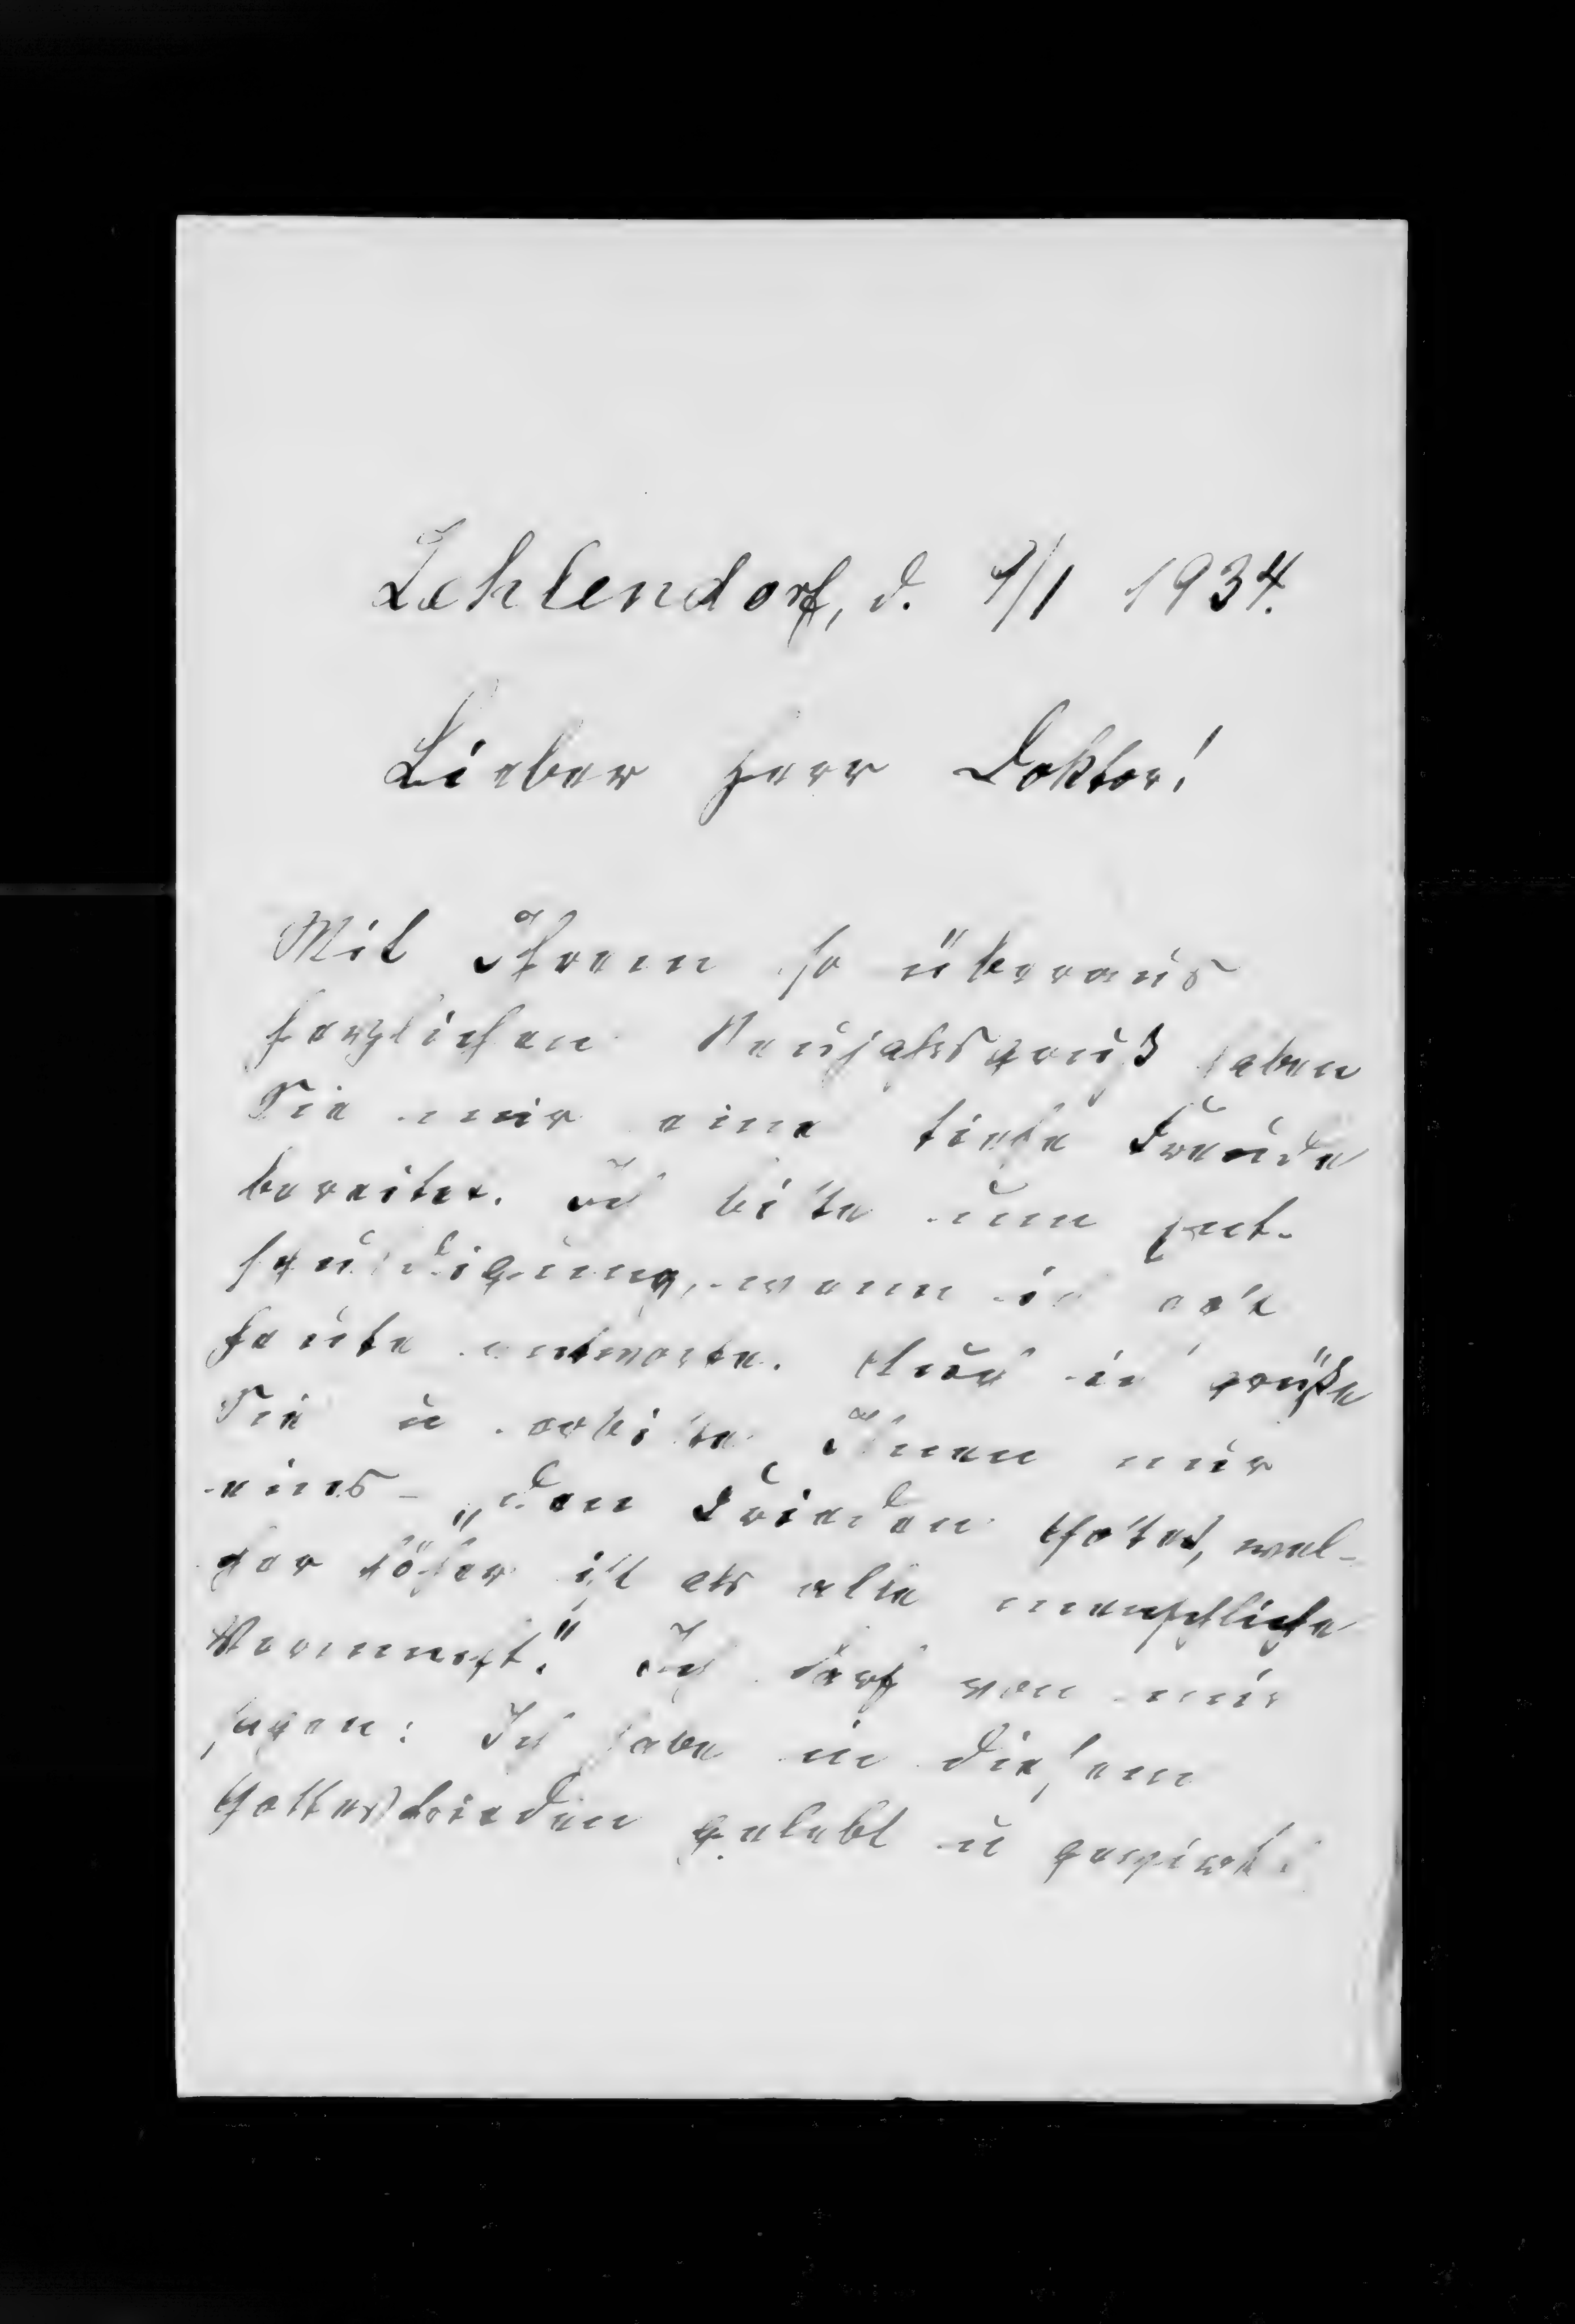 Zehlendorf, d. 9/1 1934.
Lieber Herr Doktor!
Mit Ihrem so überaus
herzlichen Neujahrsgruß haben
Sie mir eine tiefe Freude
bereitet. Ich bitte um Ent-
schuldigung, wenn ich erst
heute antworte. Auch ich grüße
Sie u erbitte Ihnen nur
eins – „den Frieden Gottes, wel-
cher höher ist als alle menschliche
Vernunft." Ich darf von mir
sagen: Ich habe in diesem
Gottesfrieden gelebt u gewirkt.